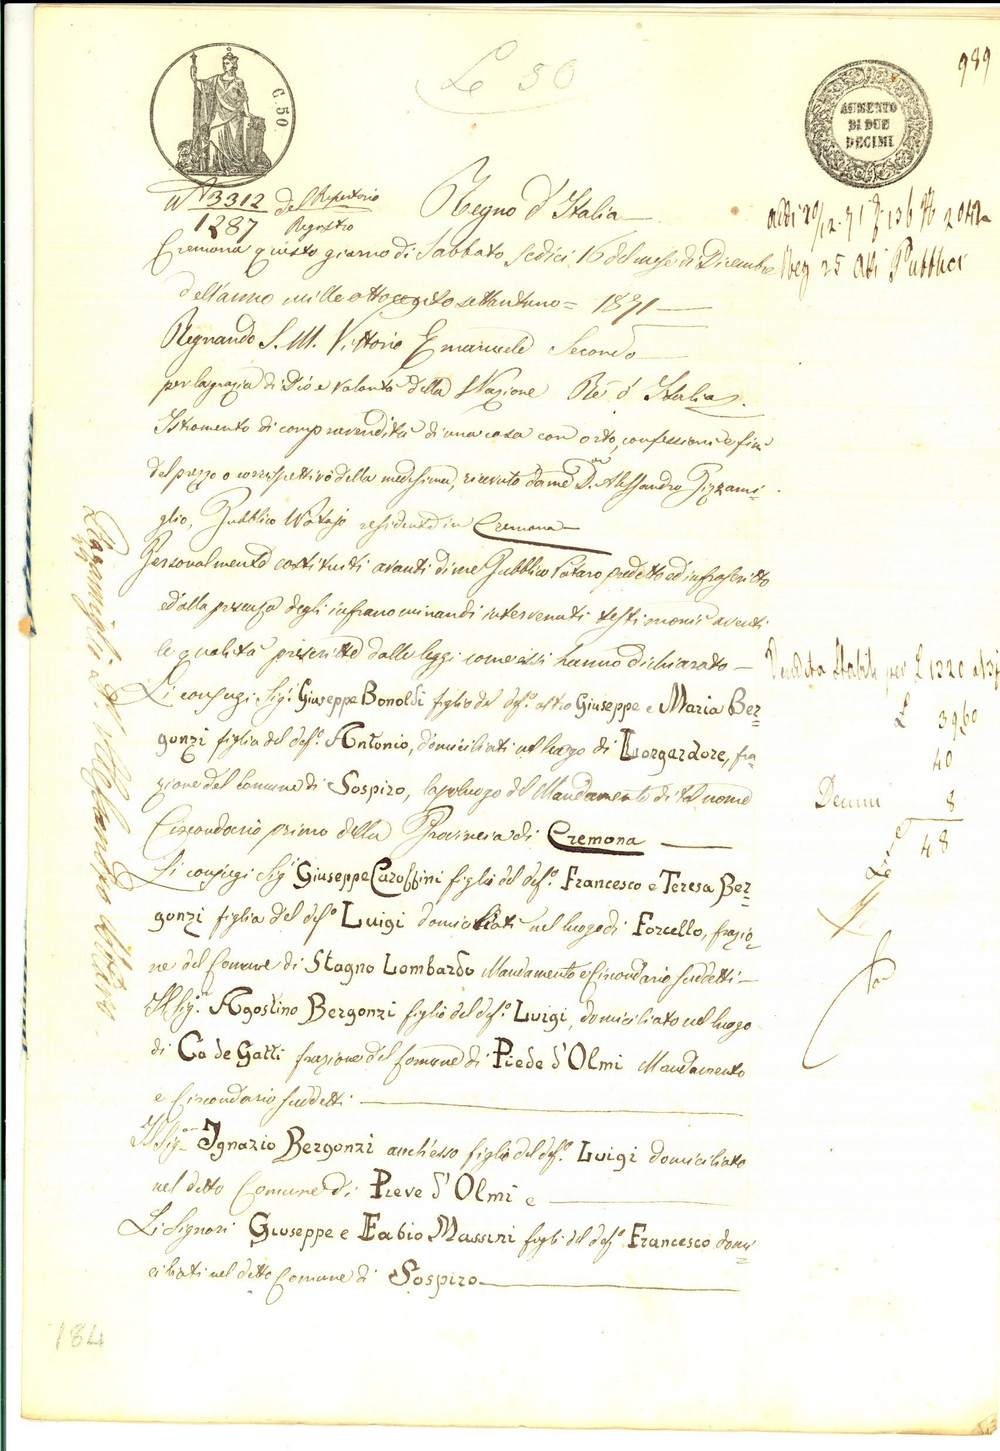 989
C. 50
AUMENTO
DI DUE
DECIMI
N° 3312 del Repertorio
1287 Registro
Regno d'Italia
Cremona questo giorno di Sabbato sedici 16 del mese di Dicembre
dell'anno mille ottocento settantuno = 1871
Regnando S. M. Vittorio Emanuele Secondo
per la grazia di Dio e volontà della Nazione Re d'Italia.
Istromento di compravendita di una casa con orto, confessioni e fini
del prezzo o corrispettivo della medesima, ricevuto da me Dr. Alessandro Pizzami-
glio, Pubblico Notajo residente in Cremona
Personalmente costituiti avanti di me Pubblico Notaro predetto ed infrascritto
ed alla presenza degli infranominandi intervenuti testimonii aventi
le qualità prescritte dalle leggi come essi hanno dichiarato
Li conjugi Sigi. Giuseppe Bonoldi figlio del def.o altro Giuseppe e Maria Ber=
gonzi figlia del def.o Antonio, domiciliati nel luogo di Lorgardore, fra=
zione del Comune di Sospiro, capoluogo del Mandamento di tal nome
Circondario primo della Provincia di Cremona
Li conjugi Sigi. Giuseppe Caroffini figlio del def.o Francesco e Teresa Ber=
gonzi figlia del def.o Luigi domiciliati nel luogo di Forcello, frazio=
ne del Comune di Stagno Lombardo Mandamento e Circondario suddetti
Il Sig.r Agostino Bergonzi figlio del def.o Luigi, domiciliato nel luogo
di Ca de Gatti frazione del Comune di Pieve d'Olmi Mandamento
e Circondario suddetti
Il Sig.r Ignazio Bergonzi anch'esso figlio del def.o Luigi domiciliato
nel detto Comune di Pieve d'Olmi e
Li Signori Giuseppe e Fabio Massini figli del def.o Francesco domi=
ciliati nel detto Comune di Sospiro
Reg 25 Atti Pubblici
Vendita Stabili per £ 1320
£ 39.60
40
Decimi 8
48
Pizzamiglio Dr. Alessandro Notaro
184